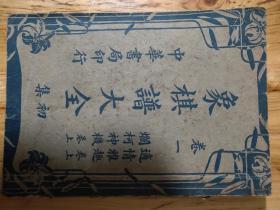 卷一
適情雅趣 卷上
爛柯神機 卷上
象棋譜大全
初集
中華書局印行